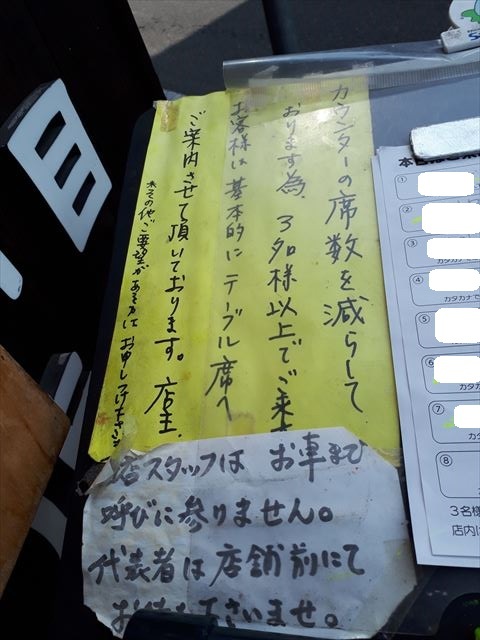 カウンターの席数を減らして
おります為、3名様以上でご来
お客様は基本的にテーブル席へ
ご案内させて頂いております。店主.
※その他、ご要望がある方はお申しつけ下さい
店スタッフは お車まで
呼びに参りません。
代表者は店舗前にて
お待ち下さいませ。
本日は
①
②
③
カタカナ
④
カタカナで
⑤
⑥
カタカ
⑦
カタ
⑧
3名様
店内